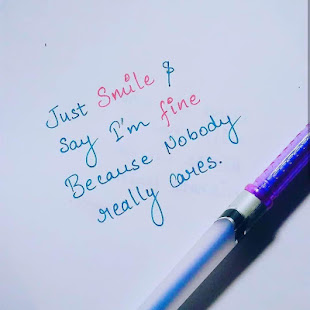 Just Smile &
Say I'm fine
Because Nobody
really cares.